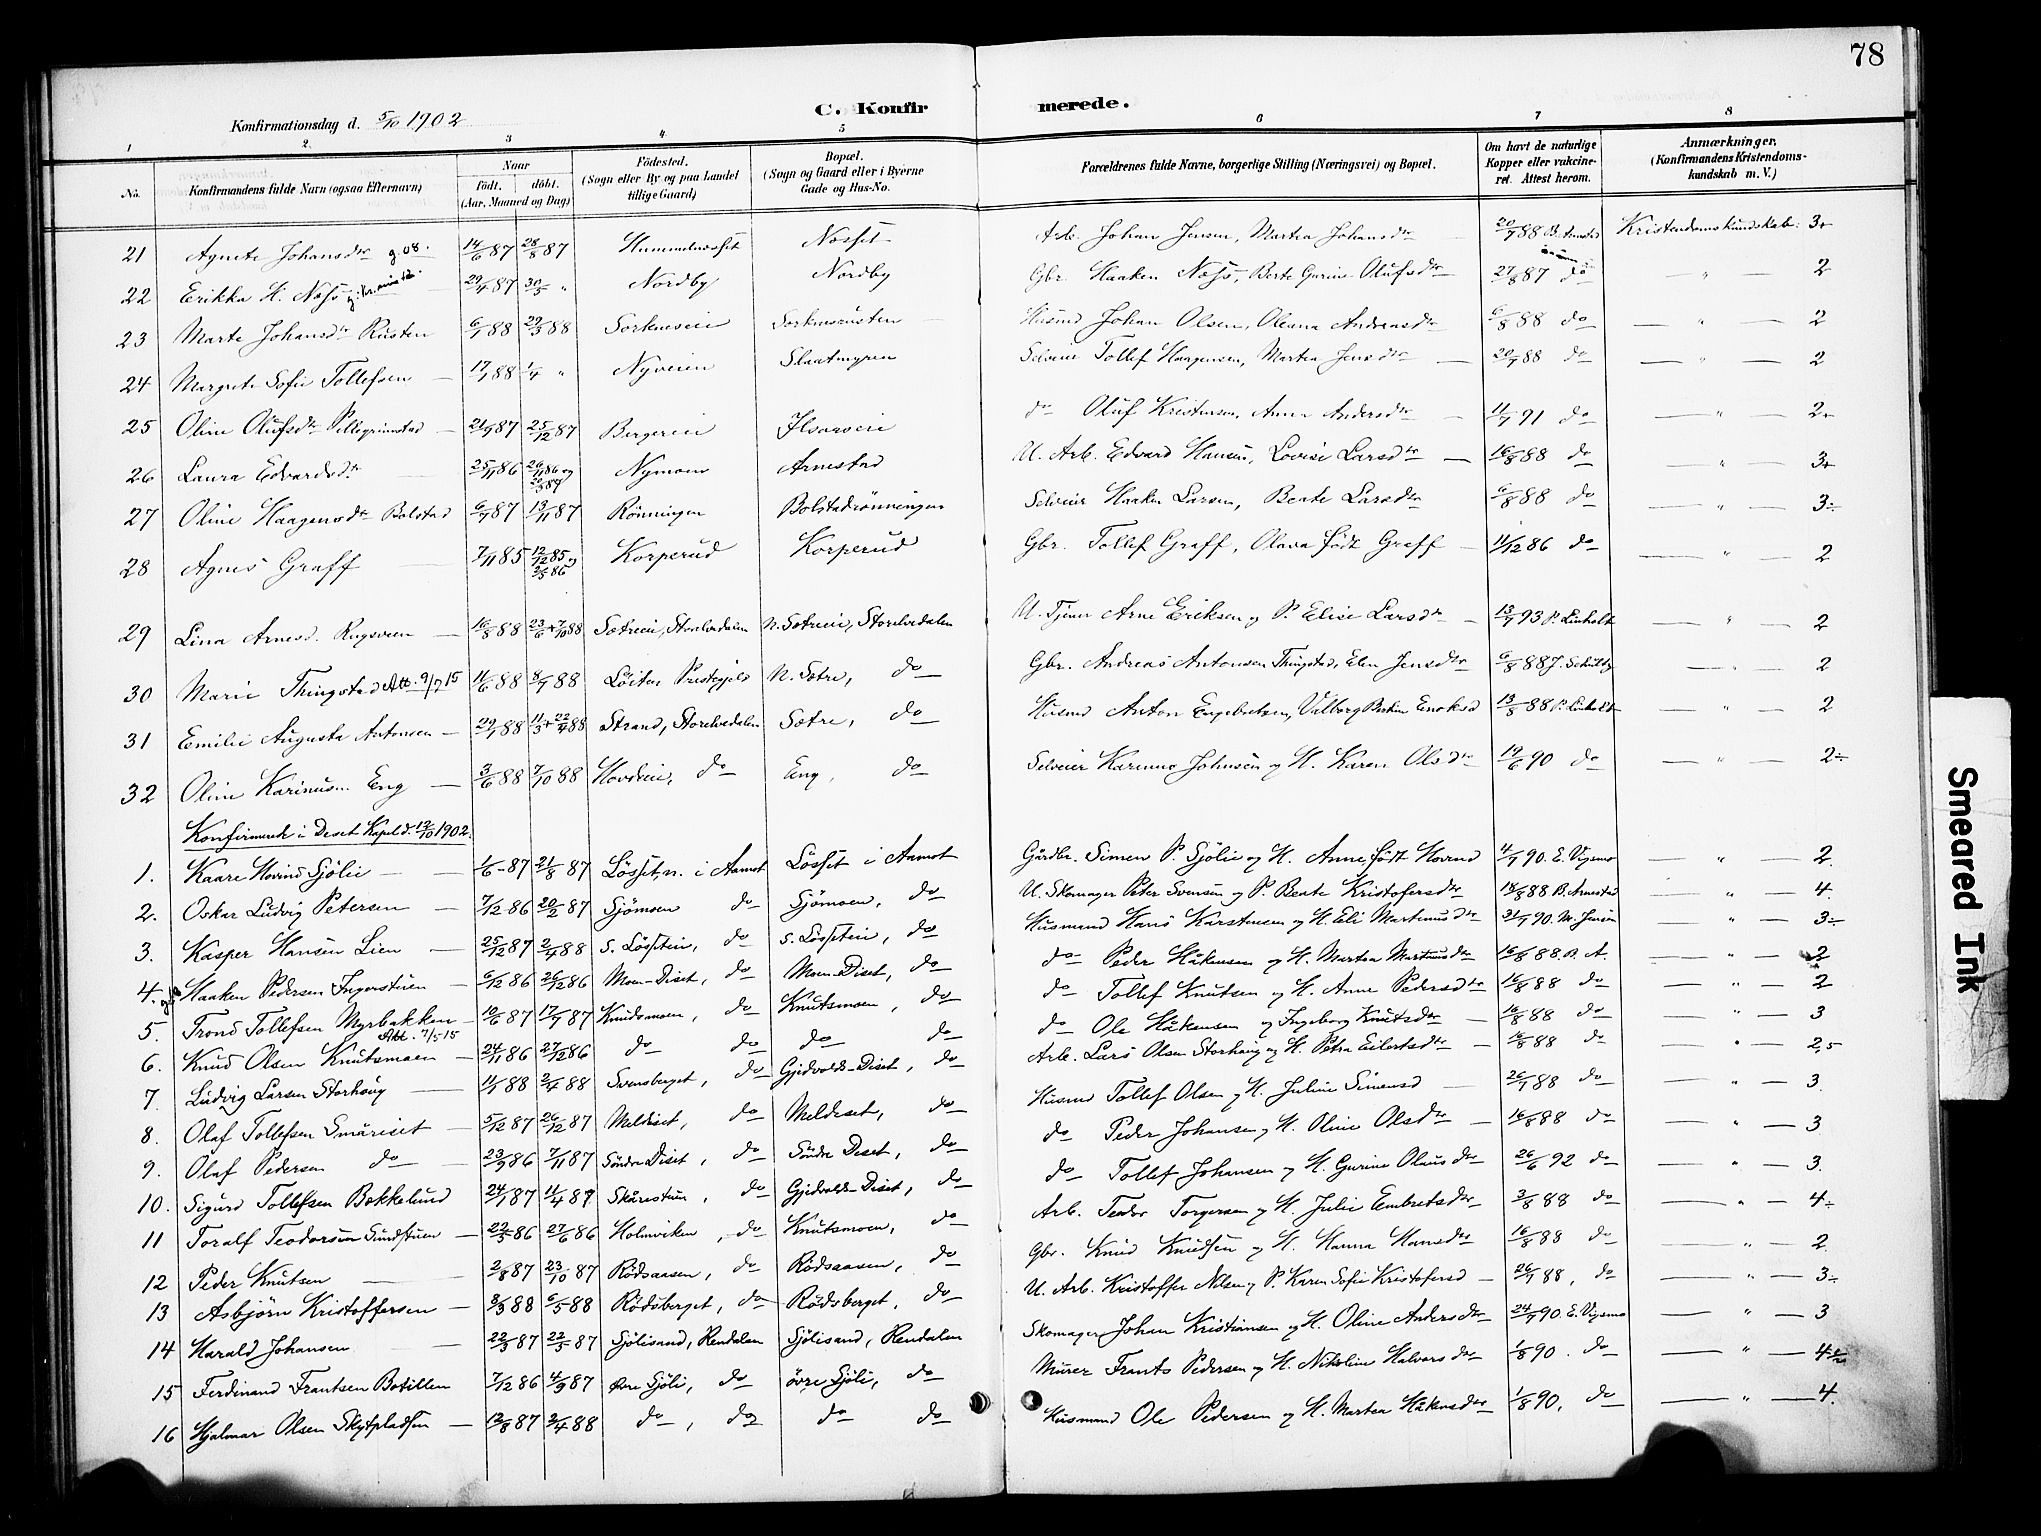 78
C. Konfirmerede.
Konfirmationsdag d. 5/10 1902
1 2. 3 4. 5 6 7 8
No. Konfirmandens fulde Navn (ogsaa Efternavn) Naar födt. döbt. (Aar, Maaned og Dag) Födested. (Sogn eller By og paa Landet tillige Gaard) Bopæl. (Sogn og Gaard eller i Byerne Gade og Hus-No. Forældrenes fulde Navne, borgerlige Stilling (Næringsvei) og Bopæl. Om havt de naturlige Kopper eller vakcineret. Attest herom. Anmærkninger. (Konfirmandens Kristendomskundskab m. V.)
21 Agnete Johansdtr 14/6 87 28/8 87 Nosset Arb. Johan Jensen, Martea Johansdtr 20/7 88 B. Arnestad Kristendomskundskab: 3+
22 Erikka H. Næss 29/4 87 30/5 " Nordby Nordby Gbr. Haaken Næss, Berte Gurine Olufsdtr 27/8 87 do " 2
23 Marte Johansdtr Rusten 6/1 88 29/3 88 Sorknesrusten Husmd Johan Olsen, Oleana Andreasdtr 6/8 88 do " 2
24 Margrete Sofie Tollefsen 17/1 88 1/4 " Nyveien Slaatmyren Selveier Tollef Haagensen, Martea Jensdtr 20/7 88 do " 2
25 Oline Olufsdtr Pellegrinstad 21/9 87 25/12 87 Bergereie do Oluf Kristensen, Anne Andersdtr 11/7 91 do " 2+
26 Laura Edvardsdtr 25/11 86 26/11 86 og 20/3 87 Nymoen Arnestad U. Arb. Edvard Hansen, Lovise Larsdtr 16/8 88 do " 3+
27 Oline Haagensdtr Bolstad 6/7 87 13/11 87 Rönningen Bolstadrönningen Selveier Haaken Larsen, Beate Larsdtr 6/8 88 do " 3÷
28 Agnes Graff 7/11 85 12/12 85 og 2/5 86 Korperud Korperud Gbr. Tollef Graff, Olava födt Graff 11/12 86 do " 2
29 Lina Arnesd. Rugsveen 16/8 88 23/6 + 7/10 88 Sætreeie, Storelvedalen N. Sætreeie, Storelvedalen U. Tjener Arne Eriksen og P. Elise Larsdtr 13/7 93 P. Linholt " 2
30 Marie Thingstad Att. 9/7 15 11/6 88 8/7 88 Löiten Prestegjeld N. Sætre, do Gbr. Andreas Antonsen Thingstad, Elen Jensdtr 6/8 88 J. Schultz " 2
31 Emilie Augusta Antonsen 29/1 88 11/3 + 22/4 88 Strand, Storelvedalen Sætre, do Husmd Anton Engebretsen, Valborg Enoksd 13/8 88 P. Linholt " 2
32 Oline Karinus... Eng 3/6 88 7/10 88 Hovdeeie, do Eng, do Selveier Karinus Johnsen og H. Karen Olsdtr 19/6 90 do " 2÷
Konfirmerede i Deset Kapel d. 12/10 1902.
1. Kaare Hovind Sjölie 1/6 87 21/8 87 Lösset, n. i Aamot Lösset i Aamot Gårdbr. Simen P. Sjölie og H. Anne födt Hovind 4/7 90. E. Vigsmo " 2
2. Oskar Ludvig Petersen 7/12 86 20/2 87 Sjömoen do Sjömoen, do U. Skomager Peter Svensen og P. Beate Kristofersdtr 18/8 88 B. Arnestad " 4.
3. Kasper Hansen Lien 25/12 87 2/4 88 S. Lösseteie, do S. Lösseteie, do Husmand Hans Karstensen og H. Eli Martinusdtr 31/7 90. M. Jensen " 3÷
4. Haaken Pedersen Ingerstuen 6/12 86 26/12 86 Moen-Diset, do Moen-Diset, do do Peder Håkensen og H. Martea Martinusdtr 16/8 88 B. A. " 2
5. Trond Tollefsen Myrbakken 10/6 87 17/7 87 Knudsmoen, do Knutsmoen, do do Tollef Knutsen og H. Anne Pedersdtr 16/8 88 do " 2
Att. 7/5 15
6. Knud Olsen Knutsmoen 24/11 86 27/12 86 do do do do do Ole Håkensen og Ingeborg Knutsdtr 16/8 88 do " 3
7. Ludvig Larsen Storhaug 11/1 88 2/4 88 Svensberget, do Gjedvolds-Diset, do Arb. Lars Olsen Storhaug og H. Petra Eilertsdtr 16/8 88 do " 2,5
8. Olaf Tollefsen Småriset 5/12 87 26/12 87 Meldiset, do Meldiset, do Husmd Tollef Olsen og H. Juline Simensd 26/7 88 do " 3.
9. Olaf Pedersen do 23/9 86 7/11 87 Söndre Diset, do Söndre Diset, do do Peder Johansen og H. Oline Olsdtr 16/8 88 do " 3
10. Sigurd Tollefsen Bakkelund 24/1 87 11/4 87 Skårstuen, do Gjedvolds-Diset, do do Tollef Johansen og H. Gurine Olausdtr 26/6 92 do " 3.
11 Toralf Teodorsen Sundstuen 22/5 86 27/6 86 Holmviken, do Knutsmoen, do Arb. Teodor Torgersen og H. Julie Embretsdtr 3/8 88 do " 4÷
12 Peder Knutsen 2/8 87 23/10 87 Rödsaasen, do Rödsaasen, do Gbr. Knud Knudsen og H. Hanna Hansdtr 16/8 88 do " 2
13 Asbjörn Kristoffersen 8/3 88 6/5 88 Rödsberget, do Rödsberget, do U. Arb. Kristoffer Nilsen og P. Karen Sofie Kristofersd 26/7 88, do " 3÷
14 Harald Johansen 22/3 87 22/5 87 Sjölisand, Rendalen Sjölisand, Rendalen Skomager Johan Kristiansen og H. Oline Andersdtr 24/7 90 E. Vigsmo " 3
15 Ferdinand Frantsen Botillen 7/12 86 4/9 87 Øvre Sjöli, do övre Sjöli, do Murer Frants Pedersen og H. Nikoline Halvorsdtr 1/8 90. do " 4
16 Hjalmar Olsen Skytpladsen 12/8 87 2/4 88 do, do do do Husmand Ole Pedersen og H. Martea Håkensdtr 1/8 90, do " 4.
Smeared Ink